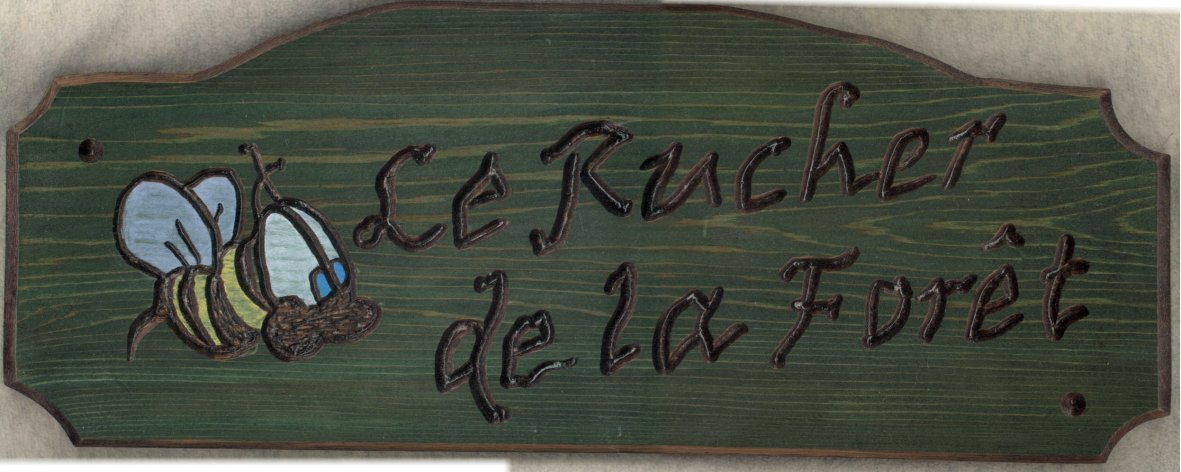 Le Rucher
de la Forêt